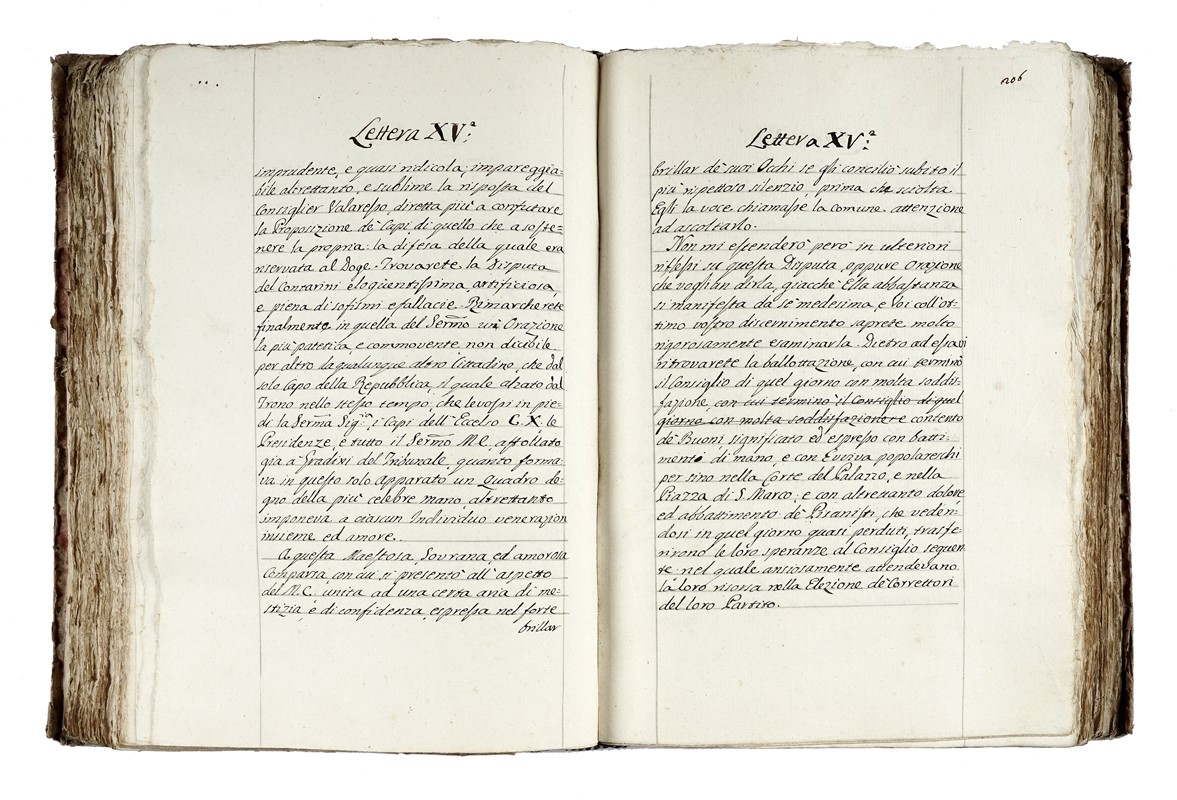 Lettera XV.ª
imprudente, e quasi ridicola; impareggia=
bile altrettanto, e sublime la risposta del
Consiglier Valaresso, diretta più a confutare
la Proposizione de Capi, di quello che a soste=
nere la propria: la difesa della quale era
riservata al Doge. Trovarete la Disputa
del Contarini eloquentissima, artificiosa,
e piena di sofismi e fallacie. Rimarcherete
finalmente in quella del Sermo un' Orazione
la più patetica, e commovente non dicibile
per altro da qualunque altro Cittadino, che dal
solo Capo della Repubblica, il quale alzato dal
Trono nello stesso tempo, che levossi in pie=
di la Serma Sigria, i Capi dell' Eccelso C. X. le
Presidenze, e tutto il Sermo M. C. affollato
già a Gradini del Tribunale, quanto forma=
va in questo solo apparato un Quadro de=
gno della più celebre mano altrettanto
imponeva a ciascun Individuo venerazion
insieme ed amore.
A questa Maestosa, Sovrana, ed amorosa
Comparsa, con cui si presentò all' aspetto
del M. C. unita ad una certa aria di me=
stizia, e di confidenza, espressa nel forte
brillar
206
Lettera XV.ª
brillar de suoi Occhi se gli conciliò subito il
più rispettoso silenzio prima che sciolta
Egli la voce chiamasse la comune attenzione
ad ascoltarlo.
Non mi estenderò però in ulteriori
riflessi su questa Disputa, oppure Orazione
che vogliam dirla, giacchè Ella abbastanza
si manifesta da se medesima, e Voi coll' ot=
timo vostro discernimento saprete molto
rigorosamente esaminarla. Dietro ad essa vi
ritrovarete la ballottazione, con cui terminò
il Consiglio di quel giorno con molta soddis=
fazione, con cui terminò il Consiglio di quel
giorno con molta soddisfazione e contento
de Buoni, significato ed espresso con batti=
menti di mano, e con Evviva popolareschi
per sino nella Corte del Palazzo, e nella
Piazza di S. Marco; e con altrettanto dolore
ed abbattimento de Pisanisti, che veden=
dosi in quel giorno quasi perduti, trasfe=
rirono le loro speranze al Consiglio seguen=
te nel quale ansiosamente attendevano
la loro risorsa nella Elezione de Correttori
del loro Partito.